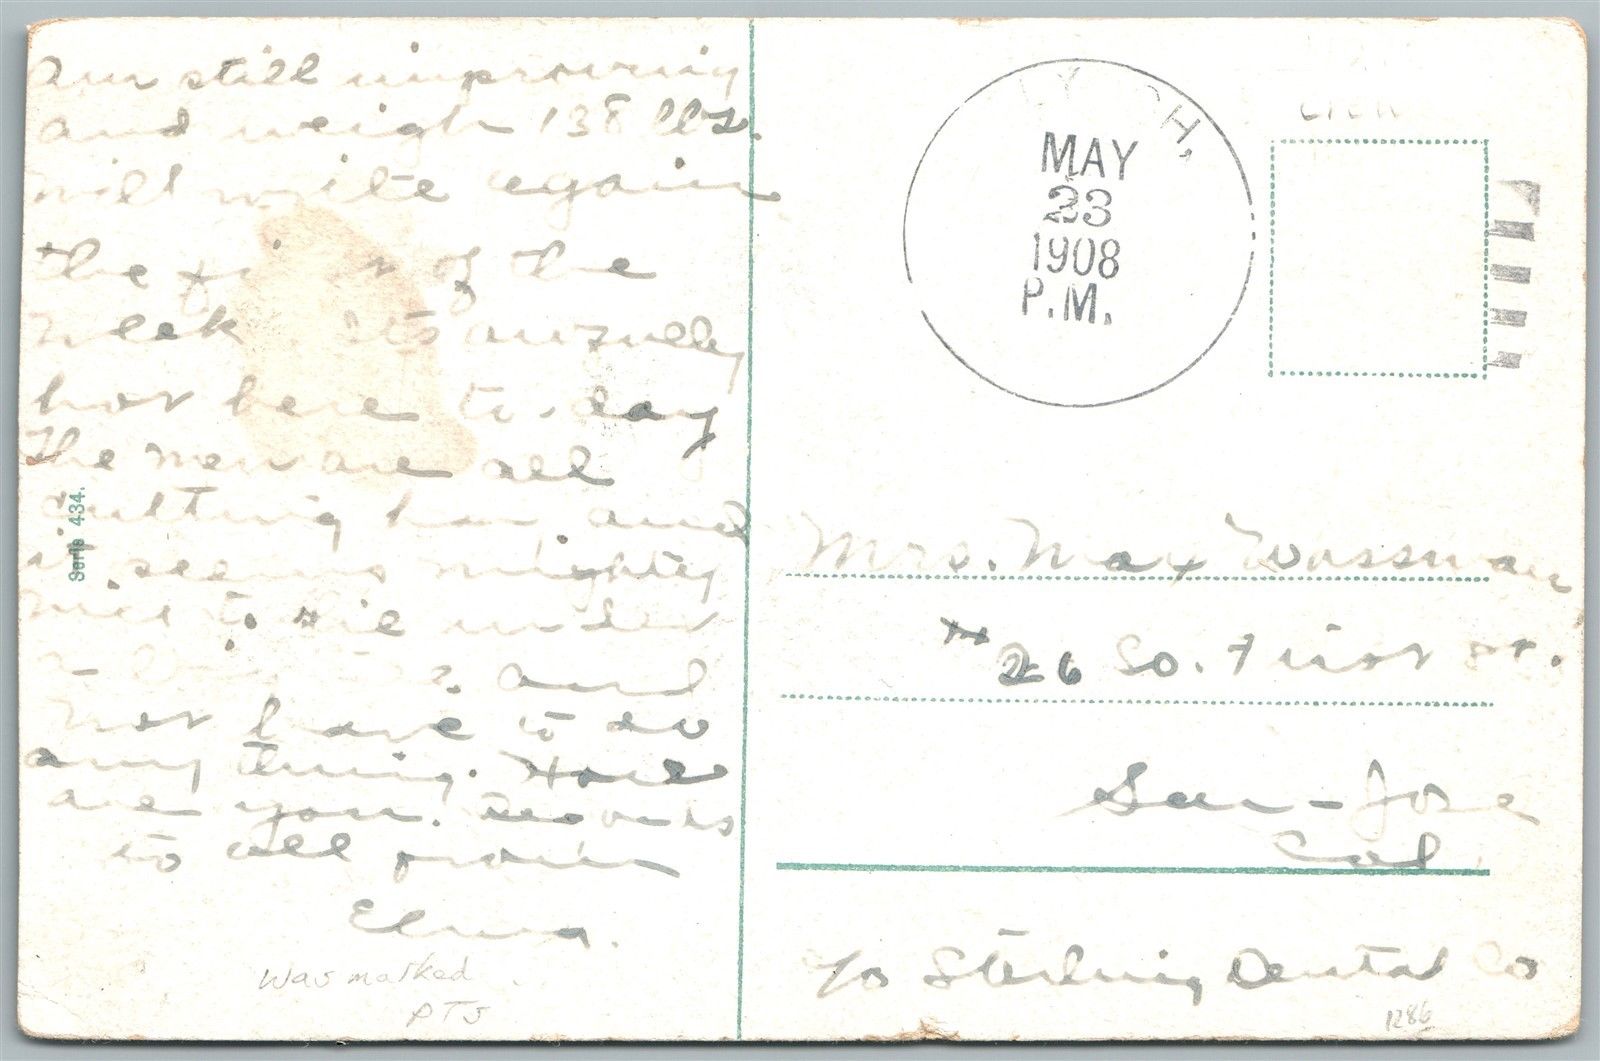 Am still improving
and weigh 138 lbs.
will write again
the of the
week. Its awfully
hot here to-day
The men are all
cutting hay and
it seems mighty
nice to lie under
a and
not have to do
any thing. How
are you. Regards
to all from
Elma.
Was marked
PTS
Serie 434.
MAY
23
1908
P.M.
Mrs. Max Wassman
# 26 So. First St.
San-Jose
Cal.
c/o Sterling Dental Co
1286